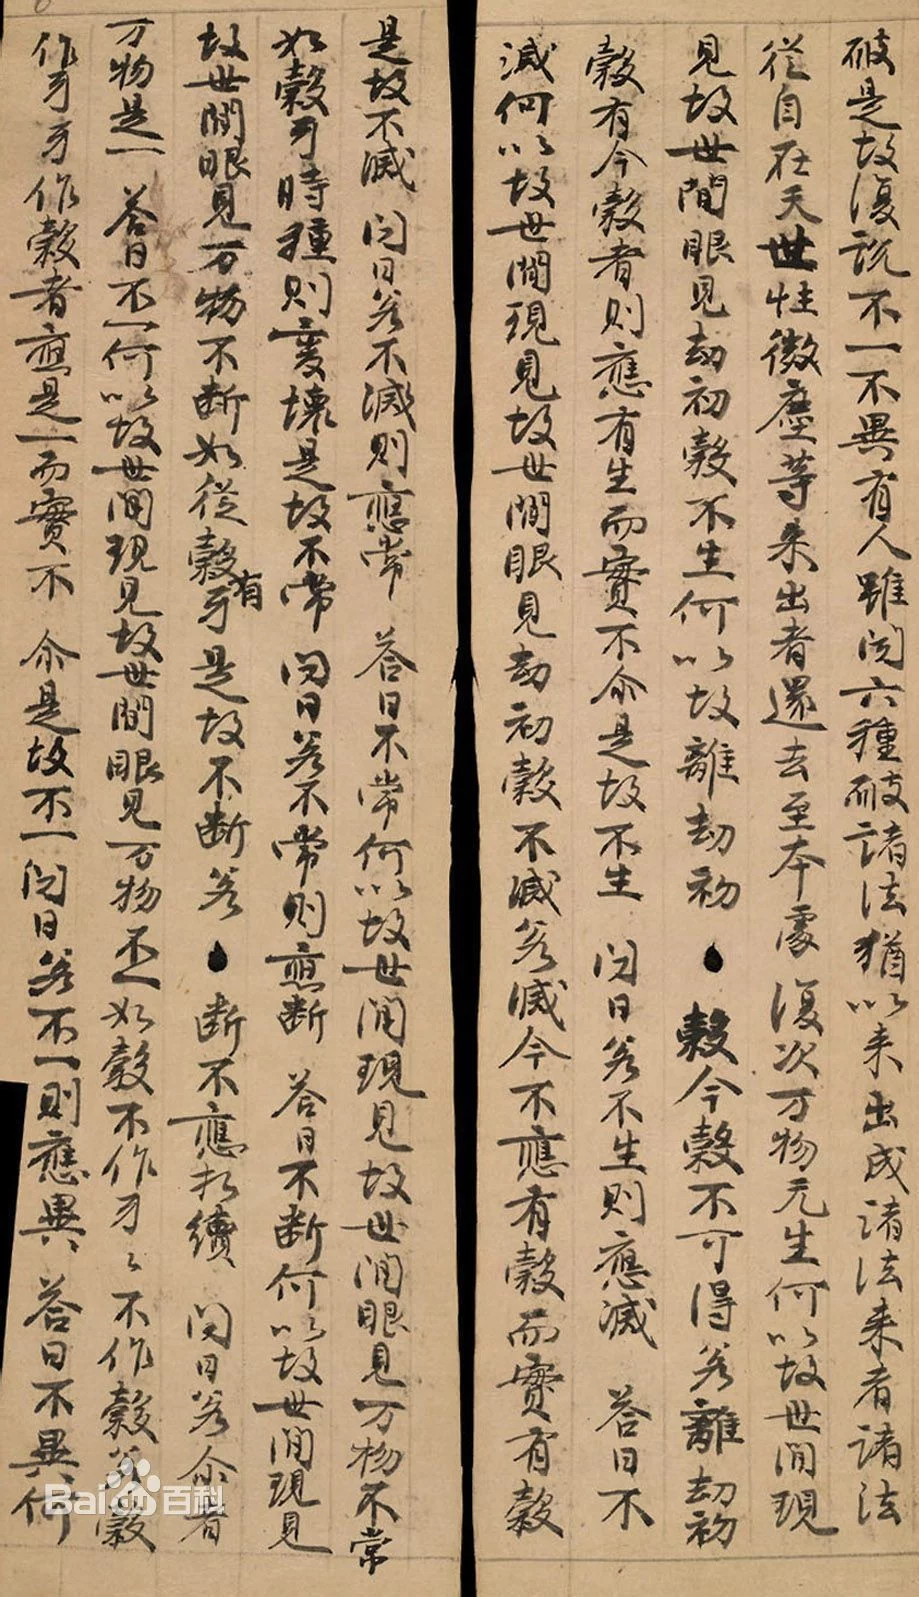 破是故復說不一不異有人雖聞六種破諸法猶以来出成諸法来者諸法
從自在天世性微塵等来出者還去至本處 復次万物无生何以故世間現
見故世間眼見劫初穀不生何以故離劫初 穀今穀不可得若離劫初
穀有今穀者則應有生而實不尒是故不生 问曰若不生則應滅 荅曰不
滅何以故世間現見故世間眼見劫初穀不滅若滅今不應有穀而實有穀
是故不滅 问曰若不滅則應常 荅曰不常何以故世間現見故世間眼見万物不常
如穀牙時種則變壞是故不常 问曰若不常則應断 荅曰不断何以故世間現見
故世間眼見万物不断如從穀有牙是故不断若 断不應相續 问曰若尒者
万物是一 荅曰不一何以故世間現見故世間眼見万物不一如穀不作牙〻不作穀若穀
作牙牙作穀者應是一而實不 尒是故不一问曰若不一則應異 荅曰不異何
Bai百科